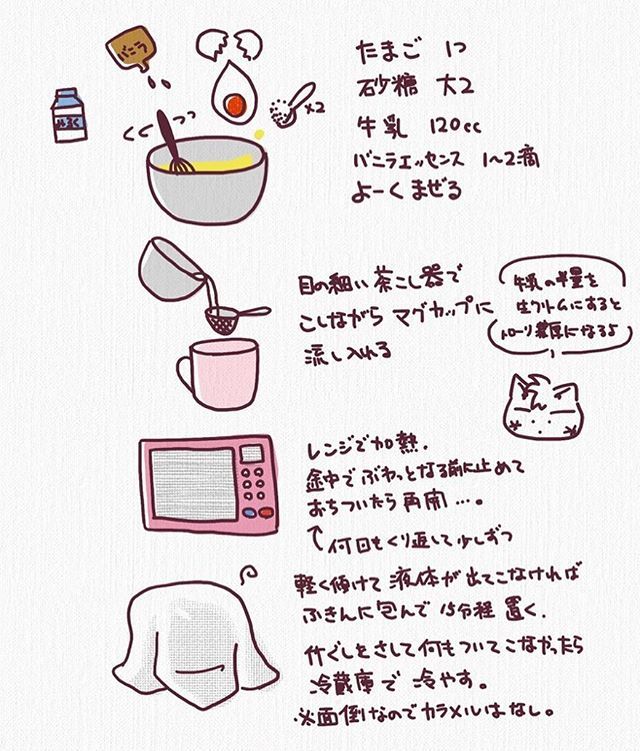 バニラ
たまご 1つ
砂糖 大2
×2
みるく
牛乳 120cc
バニラエッセンス 1〜2滴
よーくまぜる
目の細い茶こし器で
こしながらマグカップに
流し入れる
牛乳の半量を
生クリームにすると
トローリ濃厚になるよ
レンジで加熱.
途中でぶわっとなる前に止めて
おちついたら再開…。
↑何回もくり返して少しずつ
軽く傾けて液体が出てこなければ
ふきんに包んで15分程置く.
竹ぐしをさして何もついてこなかったら
冷蔵庫で冷やす。
※面倒なのでカラメルはなし。